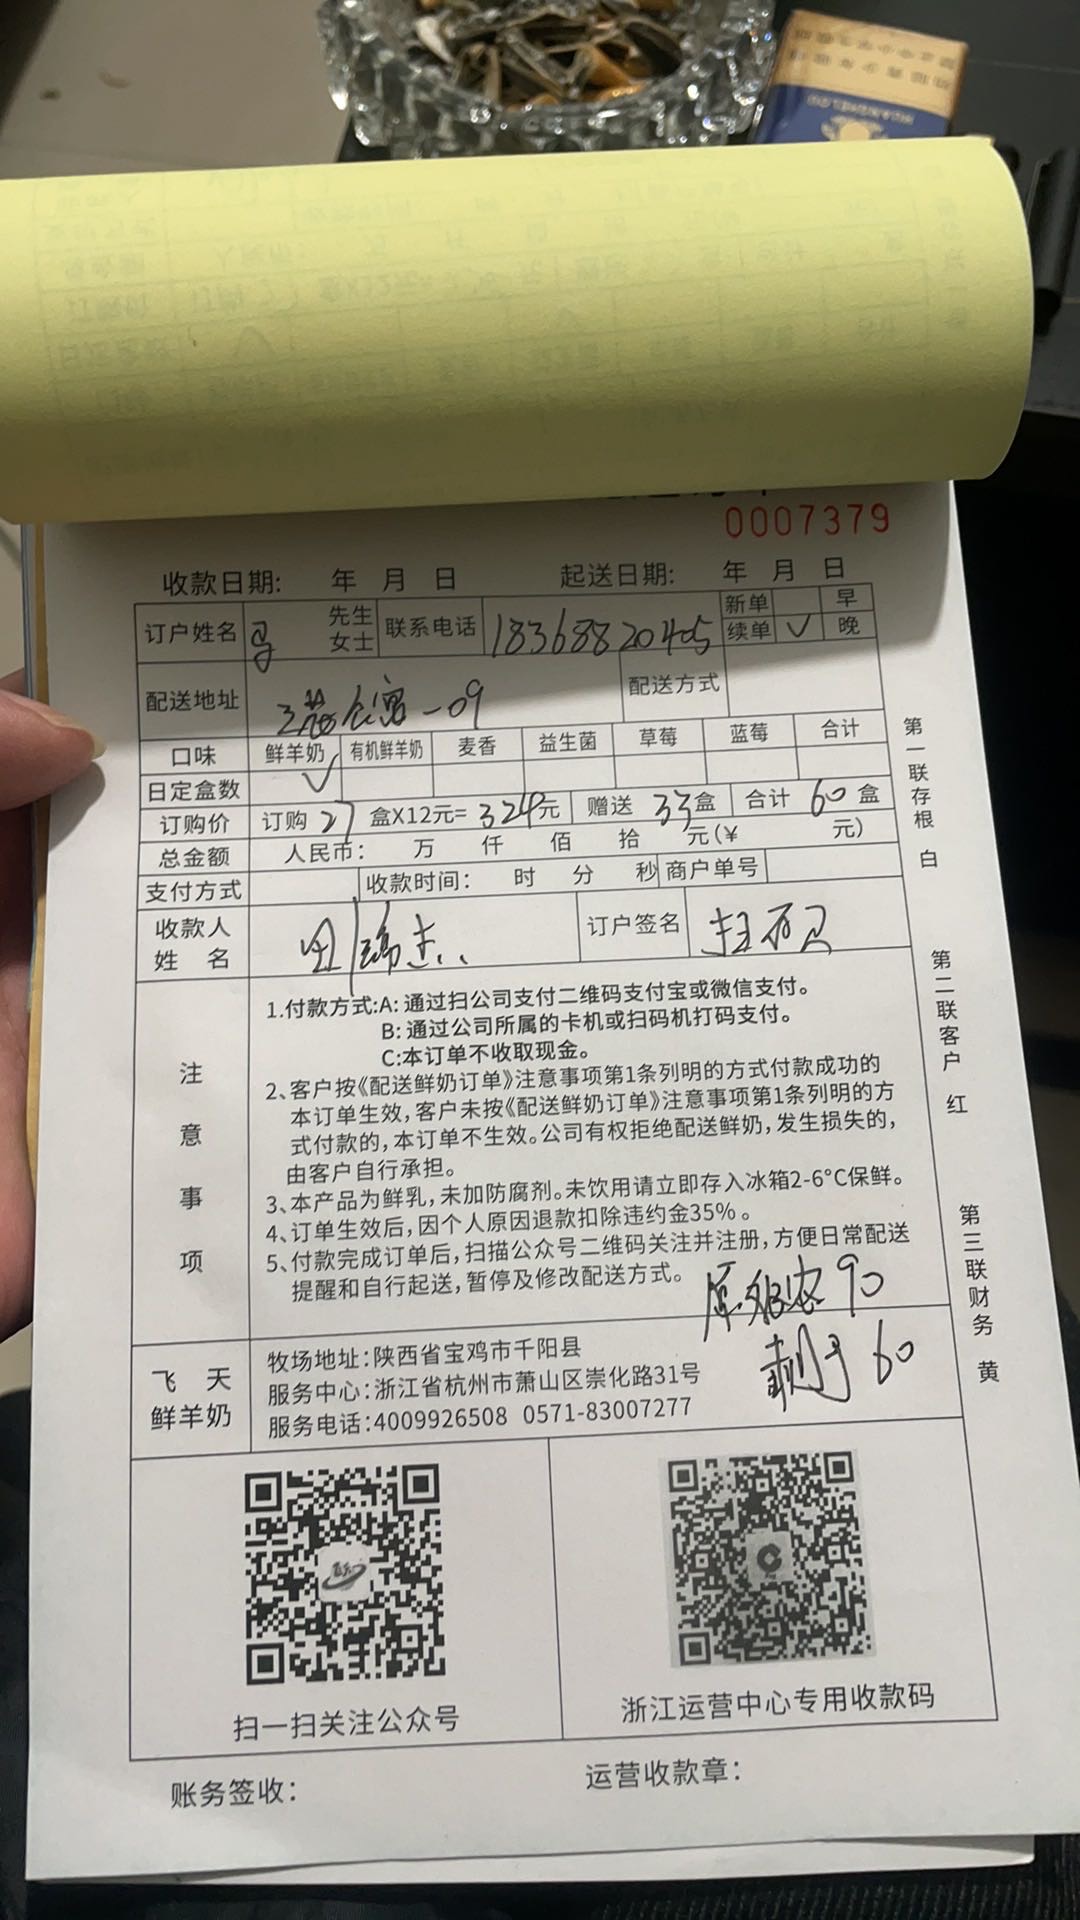 0007379
收款日期: 年 月 日 起送日期: 年 月 日
订户姓名 先生 女士 联系电话 18368820405 新单 早
续单 ✓ 晚
配送地址 一09 配送方式
口味 鲜羊奶 有机鲜羊奶 麦香 益生菌 草莓 蓝莓 合计
日定盒数 ✓
订购价 订购 27 盒X12元= 324元 赠送 33盒 合计 60 盒
总金额 人民币: 万 仟 佰 拾 元(¥ 元)
支付方式 收款时间: 时 分 秒 商户单号
收款人 姓 名 订户签名
注意事项
1.付款方式:A: 通过扫公司支付二维码支付宝或微信支付。
B: 通过公司所属的卡机或扫码机打码支付。
C:本订单不收取现金。
2、客户按《配送鲜奶订单》注意事项第1条列明的方式付款成功的
本订单生效,客户未按《配送鲜奶订单》注意事项第1条列明的方
式付款的,本订单不生效。公司有权拒绝配送鲜奶,发生损失的,
由客户自行承担。
3、本产品为鲜乳,未加防腐剂。未饮用请立即存入冰箱2-6°C保鲜。
4、订单生效后,因个人原因退款扣除违约金35%。
5、付款完成订单后,扫描公众号二维码关注并注册,方便日常配送
提醒和自行起送,暂停及修改配送方式。
90
剩于 60
飞 天
鲜羊奶
牧场地址:陕西省宝鸡市千阳县
服务中心:浙江省杭州市萧山区崇化路31号
服务电话:4009926508 0571-83007277
扫一扫关注公众号
浙江运营中心专用收款码
账务签收:
运营收款章:
第一联存根 白
第二联客户 红
第三联财务 黄